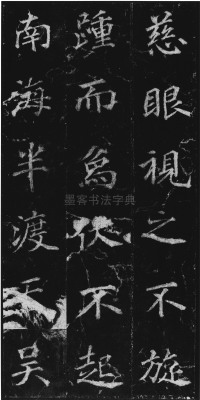 慈眼視之不旋
踵而象伏不起
南海半渡天吳
墨客书法字典